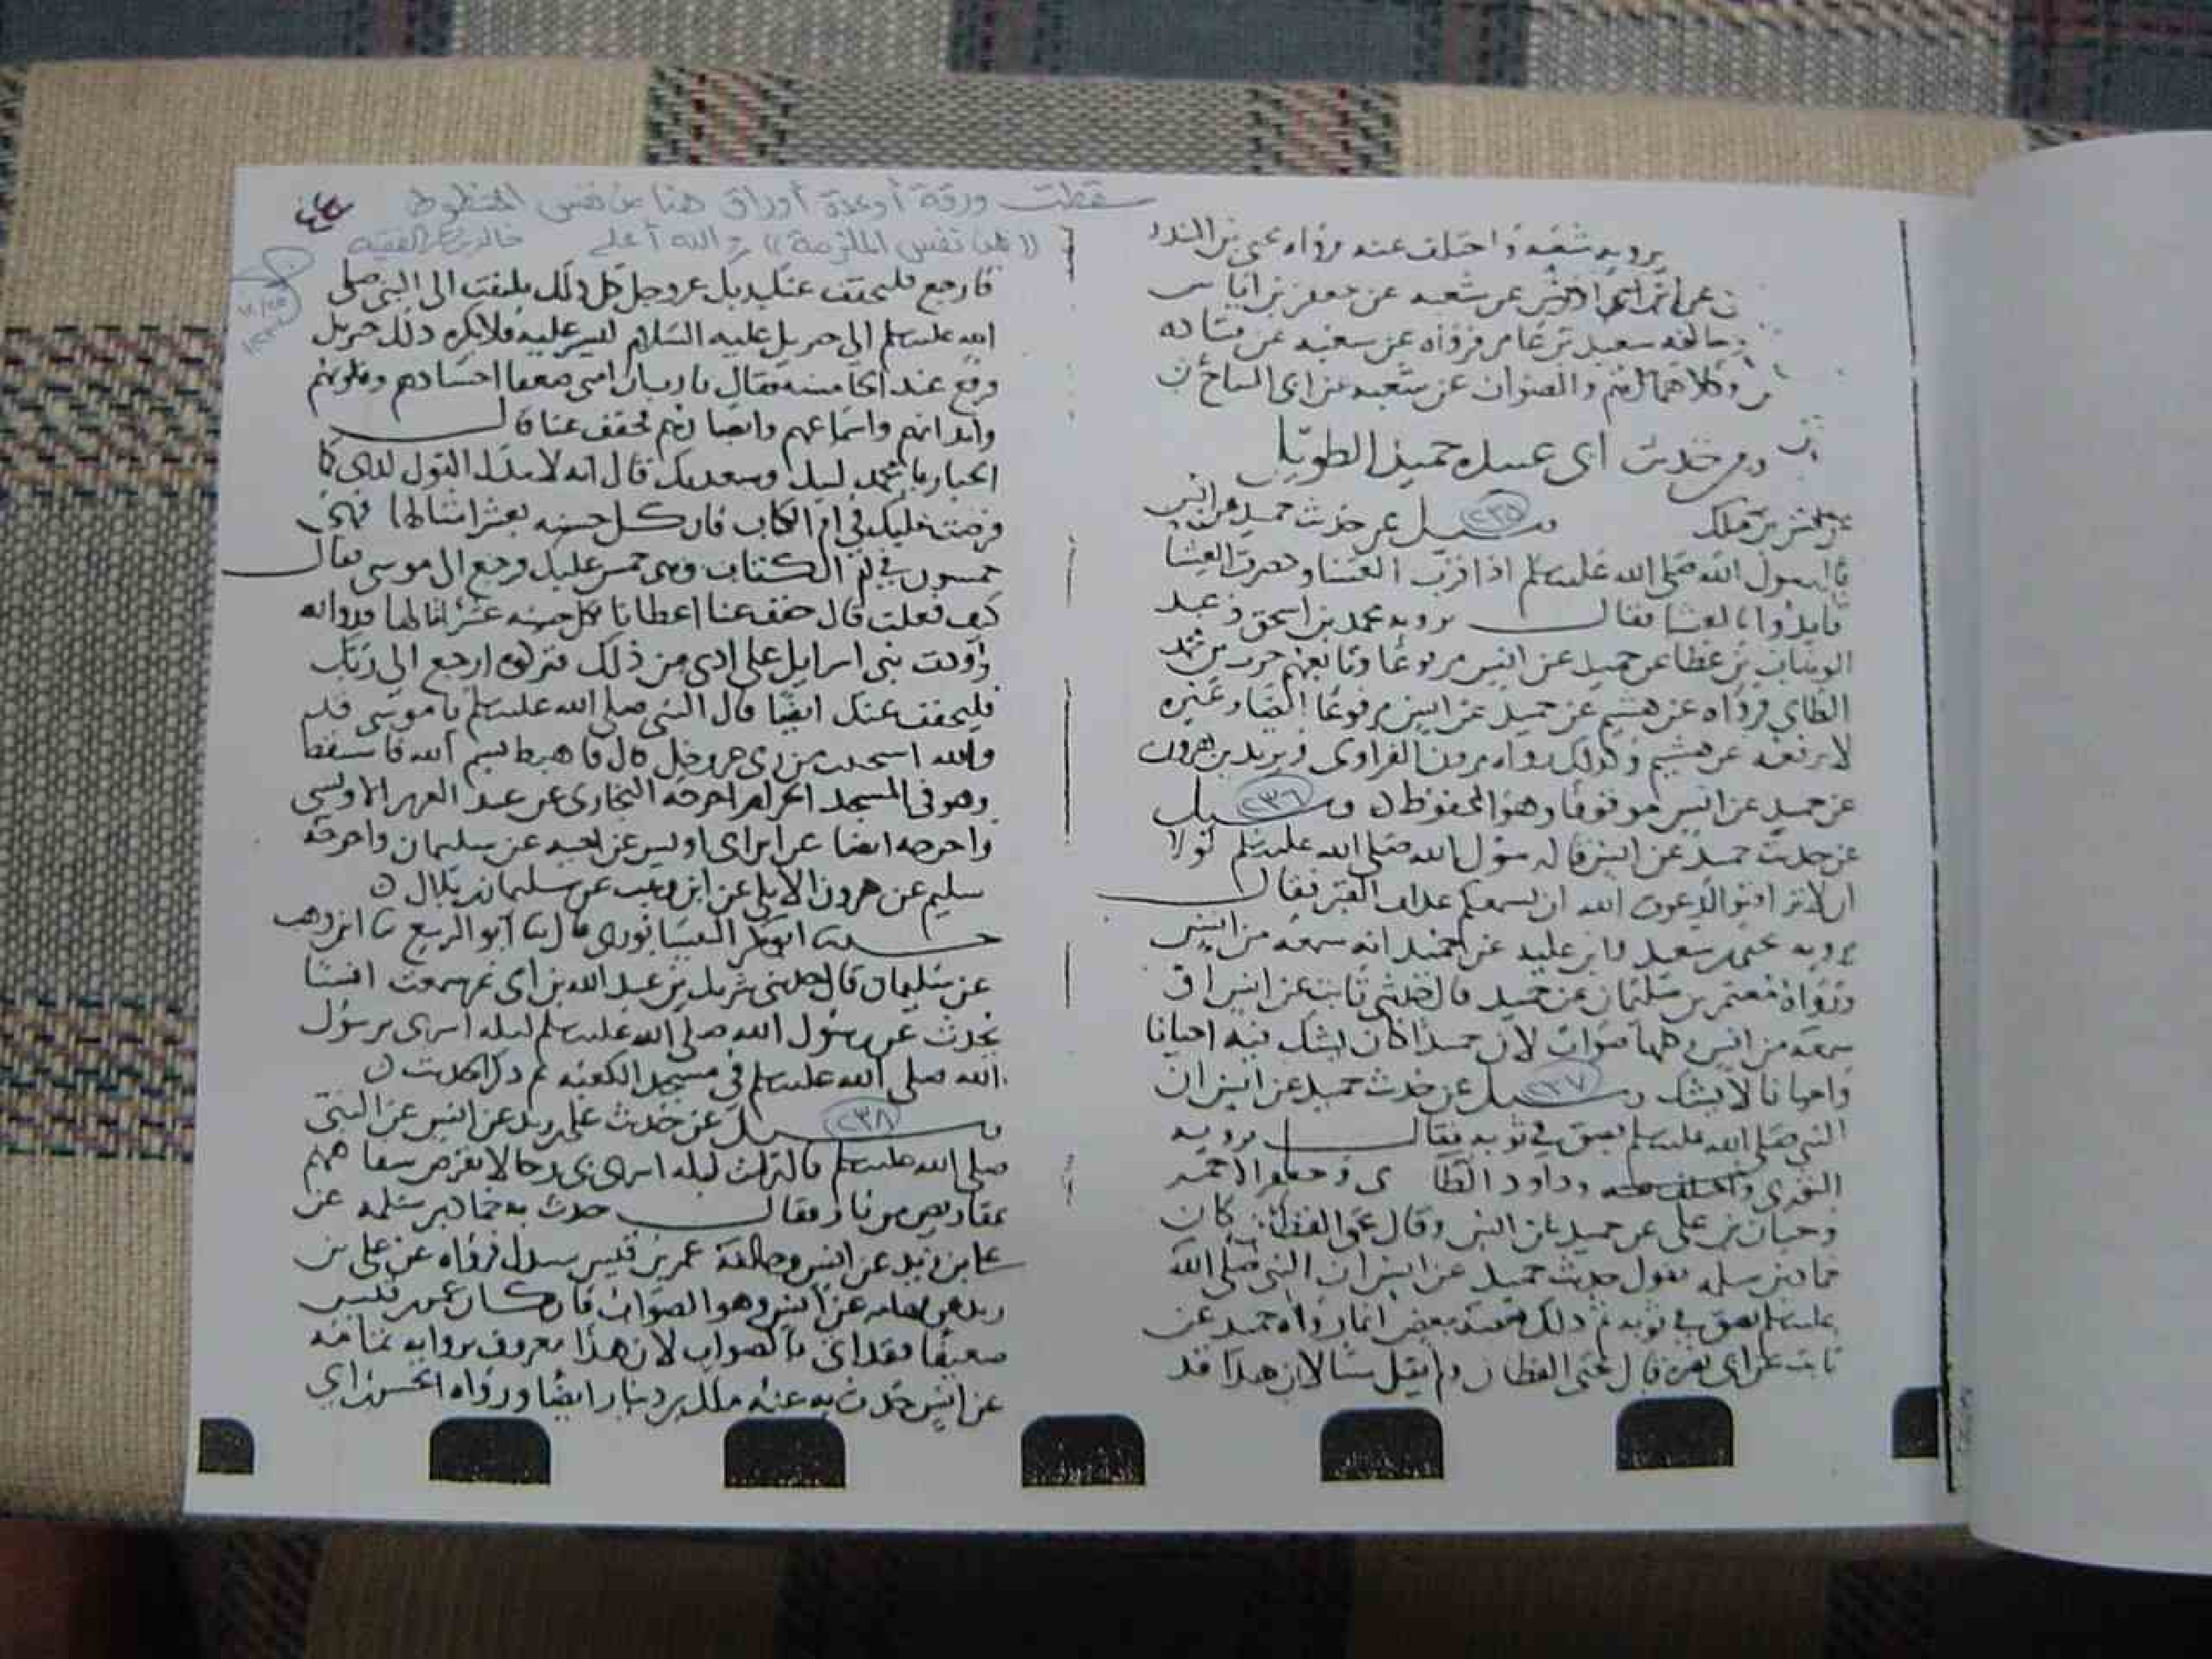 يرويه شعبه واختلف عنه فرواه يحيى بن
عن شعبه عن
وخالفه سعيد بن عامر فرواه عن سعيد عن قتاده
وكلاهما وهم والصواب عن شعبه عن ابى
ومن حديث ابى عبيده حميد الطويل
عن انس بن ملك وسيل ٢٣٥ عن حديث حميد عن انس
قال رسول الله صلى الله عليه وسلم اذا قرب العشا وحضرت العشا
فابدوا بالعشا فقال يرويه محمد بن اسحق وعبد
الوهاب بن عطا عن حميد عن انس مرفوعا وتابعهم
الطاى فرواه عن هشيم عن حميد عن انس مرفوعا ايضا وغيره
لا يرفعه عن هشيم وكذلك رواه مرون الفزاوى ويزيد بن هرون
عن حميد عن انس موقوفا وهو المحفوظ ن وسيل ٢٣٦
عن حديث حميد عن انس قال رسول الله صلى الله عليه وسلم لولا
ان لا تدافنوا لدعوت الله ان يسمعكم عذاب القبر فقال
يرويه يحيى بن سعيد وابن عليه عن حميد انه سمعه من انس
ورواه معتمر بن سليمان عن حميد قال حدثنى ثابت عن انس او
سمعه من انس وكلها صواب لان حميدا كان يشك فيه احيانا
واحيانا لا يشك وسيل ٢٣٧ عن حديث حميد عن انس ان
النبى صلى الله عليه وسلم بصق فى ثوبه فقال يرويه
الثورى وداود الطاى
وحبان بن على عن حميد عن انس وقال يحيى القطان كان
حماد بن سلمه يقول حديث حميد عن انس ان النبى صلى الله
عليه وسلم بصق فى ثوبه ثم دلك بعضه ببعض انما رواه حميد عن
ثابت عن ابى نضره قال يحيى القطان ولم يقل شيا لان هذا قد
سقطت ورقة أو عدة أوراق هنا من نفس المخطوط
((من نفس الملزمة)) والله أعلى
فارجع فليخفف عنك ربك عز وجل كل ذلك يلتفت الى النبى صلى
الله عليه وسلم الى جبريل عليه السلام ليشير عليه فلا يكره ذلك جبريل
فرفع عند الخامسه فقال يا رب ان امتى ضعفا اجسادهم وقلوبهم
وابدانهم واسماعهم وابصارهم فخفف عنا قال
الجبار يا محمد لبيك وسعديك قال انه لا يبدل القول لدى كما
فرضت عليك فى ام الكتاب فان كل حسنه بعشر امثالها فهى
خمسون فى ام الكتاب وهى خمس عليك فرجع الى موسى فقال
كيف فعلت قال خفف عنا اعطانا بكل حسنه عشر امثالها قد والله
راودت بنى اسرايل على ادنى من ذلك فتركوه ارجع الى ربك
فليخفف عنك ايضا قال النبى صلى الله عليه وسلم يا موسى قد
والله استحييت من ربى عز وجل قال فاهبط بسم الله فاستيقظ
وهو فى المسجد الحرام اخرجه البخارى عن عبد العزيز الاويسى
واخرجه ايضا عن ابن ابى اويس عن اخيه عن سليمان واخرجه
مسلم عن هرون الايلى عن ابن وهب عن سليمان بن بلال ن
حدثنا ابو بكر النيسابورى قال ثنا ابو الربيع ثنا ابن وهب
عن سليمان قال حدثنى شريك بن عبد الله بن ابى نمر سمعت انسا
يحدث عن رسول الله صلى الله عليه وسلم ليله اسرى برسول
الله صلى الله عليه وسلم فى مسجد الكعبه ثم ذكر الحديث ن
وسيل ٢٣٨ عن حديث على بن زيد عن انس عن النبى
صلى الله عليه وسلم قال رايت ليله اسرى بى رجالا تقرض شفاههم
بمقاريض من نار فقال حدث به حماد بن سلمه عن
على بن زيد عن انس وخالفه عمر بن قيس فرواه عن على بن
زيد عن ثمامه عن انس وهو الصواب فان كان عمر بن قيس
ضعيفا فقد اتى بالصواب لان هذا معروف بروايه ثمامه
عن انس حدث به عنه ملك بن دينار ايضا ورواه الحسن بن ابى